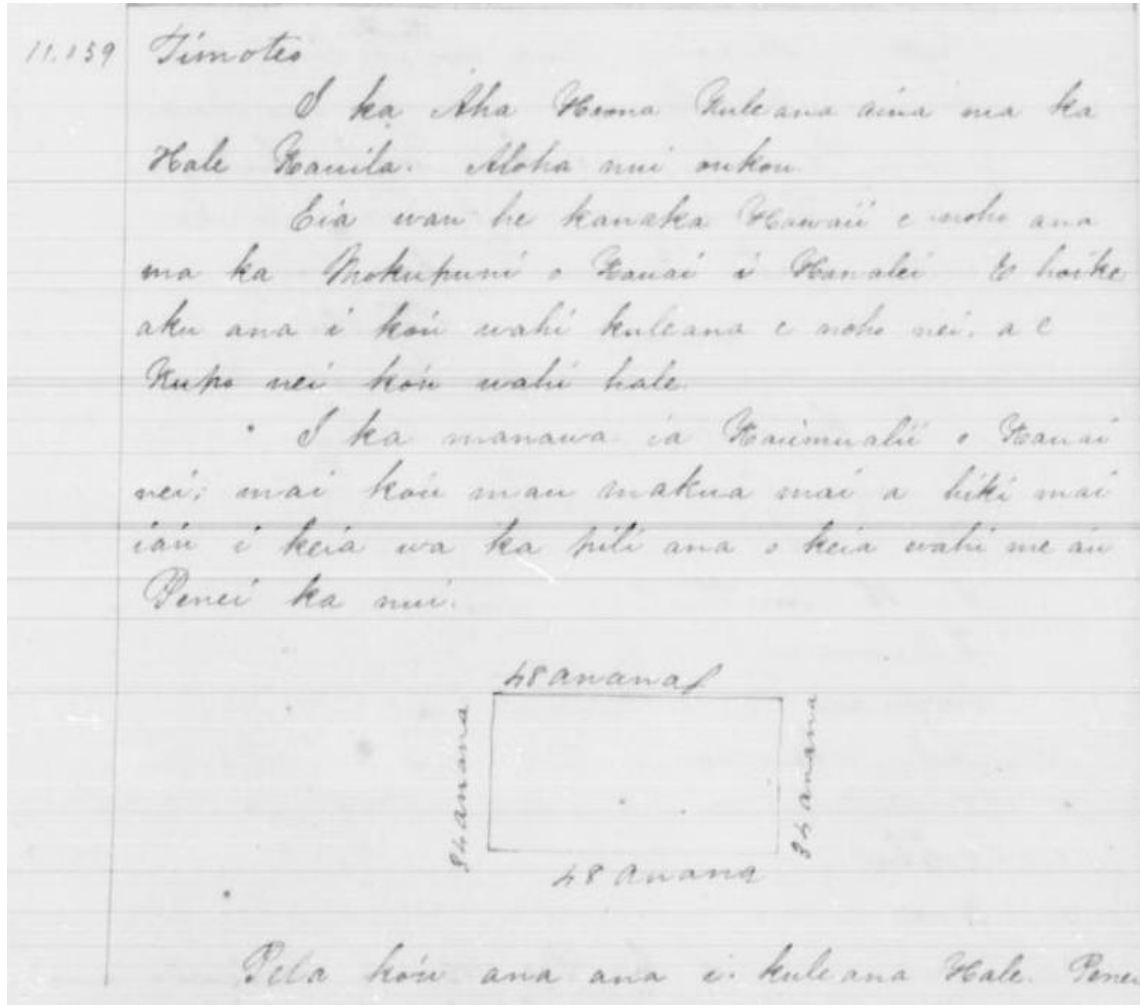 11.139 Timoteo
I ka Aha Hoona Kuleana aina ma ka
Hale Kauila. Aloha nui oukou.
Eia wau he kanaka Hawaii e noho ana
ma ka Mokupuni o Kauai i Hanalei E hoike
aku ana i koú wahi kuleana e noho nei. a e
Kupo nei koú wahi hale.
I ka manawa ia Kaumualii o Kauai
nei; mai koú mau makua mai a hiki mai
iaú i keia wa ka pili ana o keia wahi me aú
Penei ka nui.
48 anana
34 anana
34 anana
48 anana
Pela koú ana ana i kuleana Hale. Penei